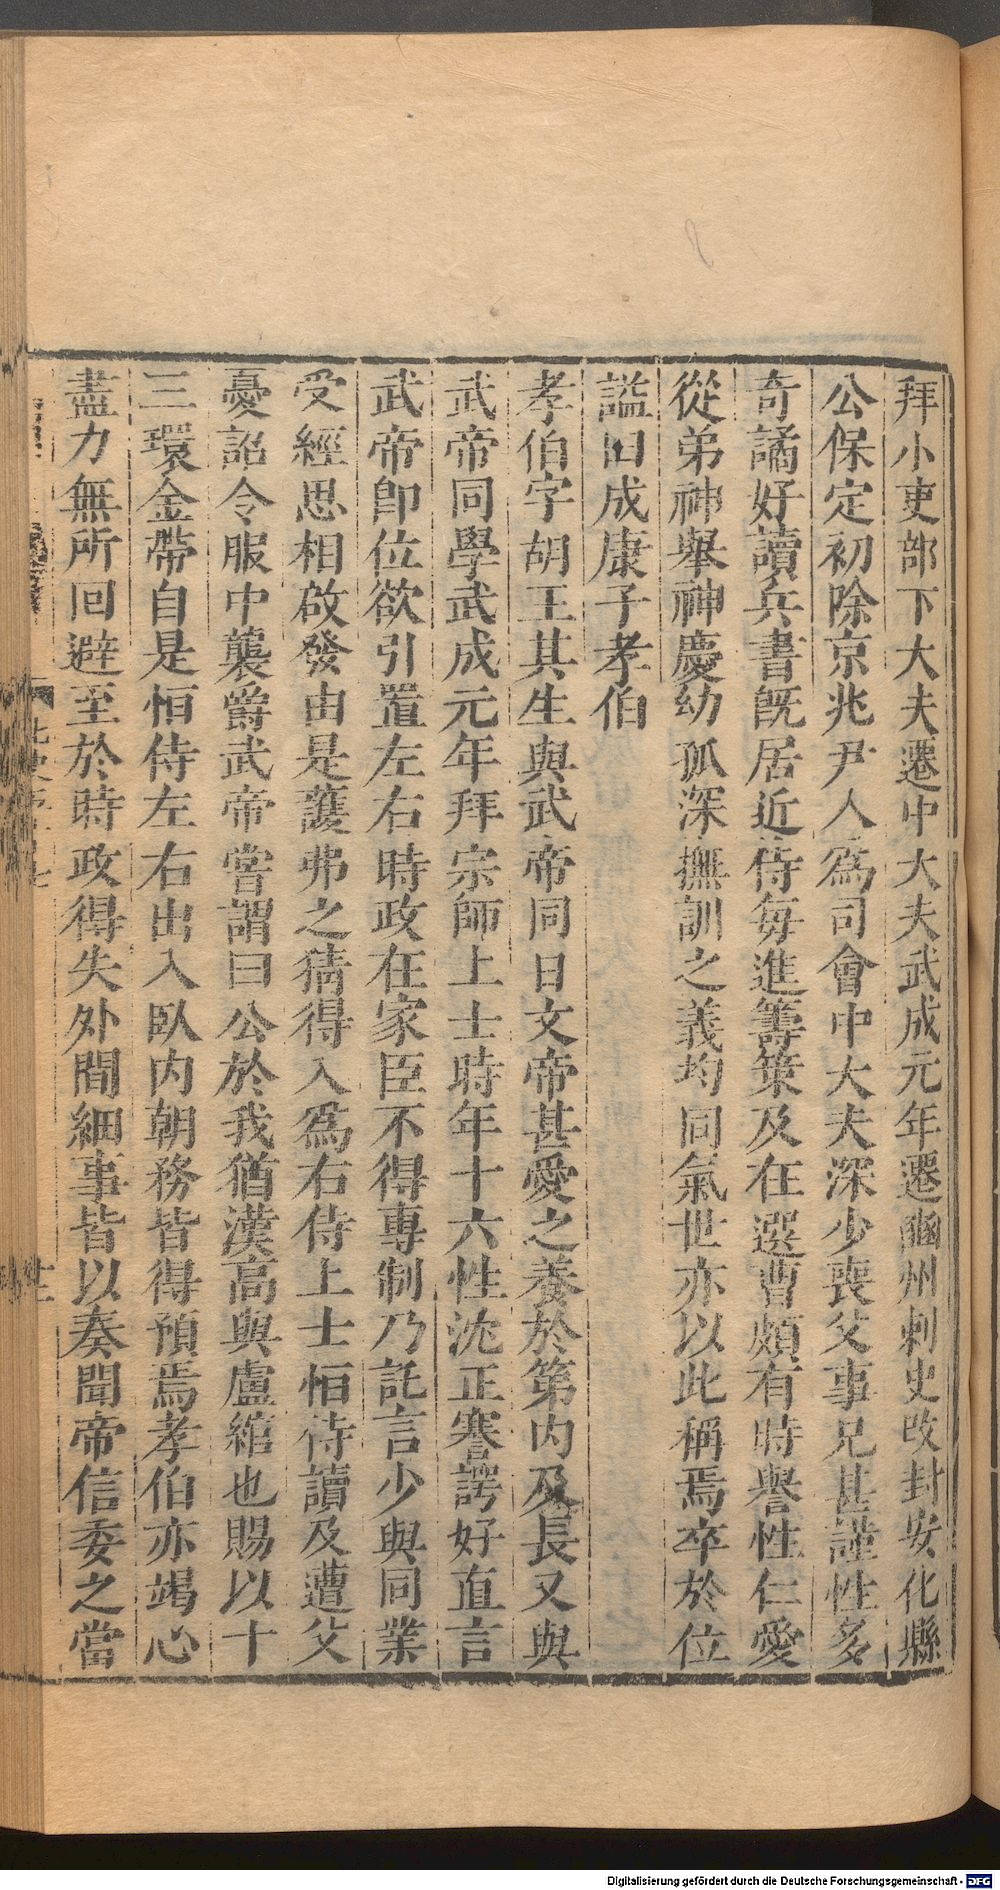 拜小吏部下大夫遷中大夫武成元年遷豳州刺史改封安化縣
公保定初除京兆尹入爲司會中大夫深少喪父事兄甚謹性多
奇譎好讀兵書旣居近侍每進籌策及在選曹頗有時譽性仁愛
從弟神舉神慶幼孤深撫訓之義均同氣世亦以此稱焉卒於位
謚曰成康子孝伯
孝伯字胡王其生與武帝同日文帝甚愛之養於第内及長又與
武帝同學武成元年拜宗師上士時年十六性沈正謇諤好直言
武帝卽位欲引置左右時政在家臣不得專制乃託言少與同業
受經思相啟發由是護弗之猜得入爲右侍上士恒侍讀及遭父
憂詔令服中襲爵武帝嘗謂曰公於我猶漢高與盧綰也賜以十
三環金帶自是恒侍左右出入臥内朝務皆得預焉孝伯亦竭心
盡力無所回避至於時政得失外間細事皆以奏聞帝信委之當
Digitalisierung gefördert durch die Deutsche Forschungsgemeinschaft - DFG